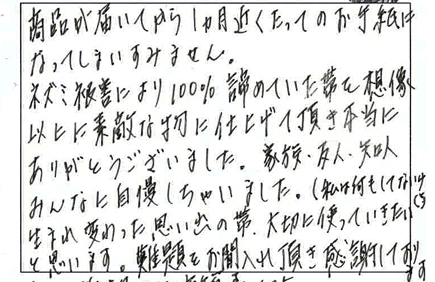 商品が届いてから1ヵ月近くたってのお手紙に
なってしまいすみません。
ネズミ被害により100%諦めていた帯を想像
以上に素敵な物に仕上げて頂き本当に
ありがとうございました。家族・友人・知人
みんなに自慢しちゃいました。(私は何もしてないけど)
生まれ変わった思い出の帯、大切に使っていきたい
と思います。難題をお聞入れ頂き感謝しております